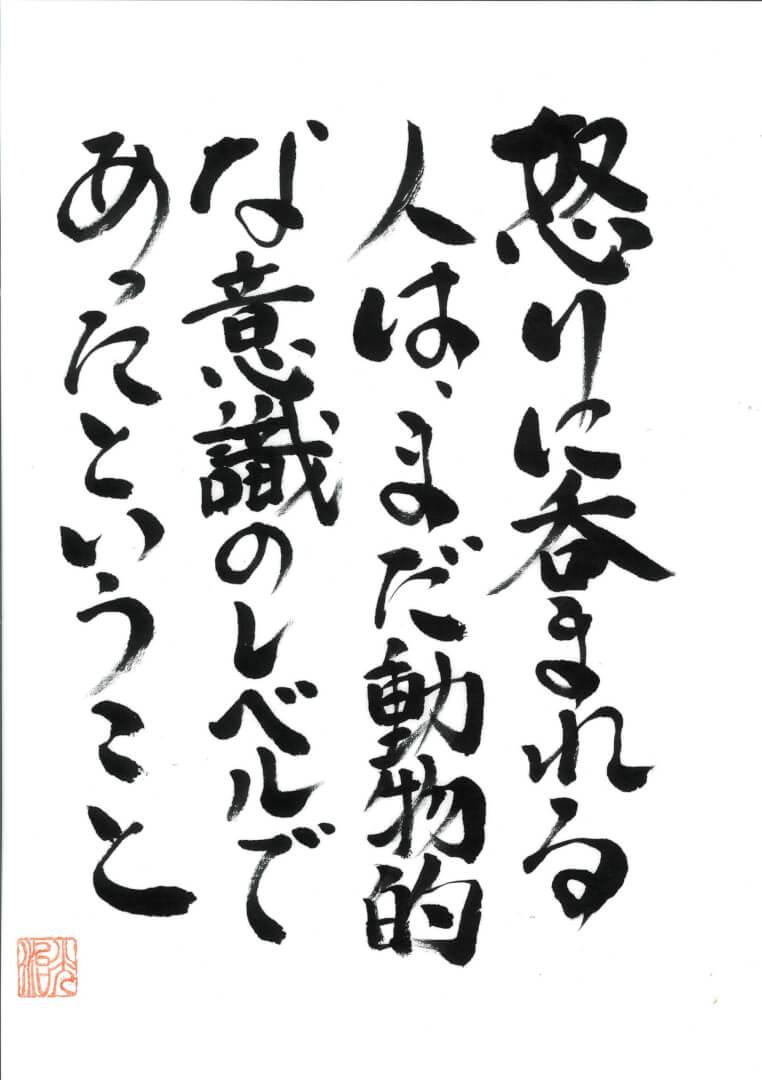 怒りに呑まれる
人は、まだ動物的
な意識のレベルで
あったということ